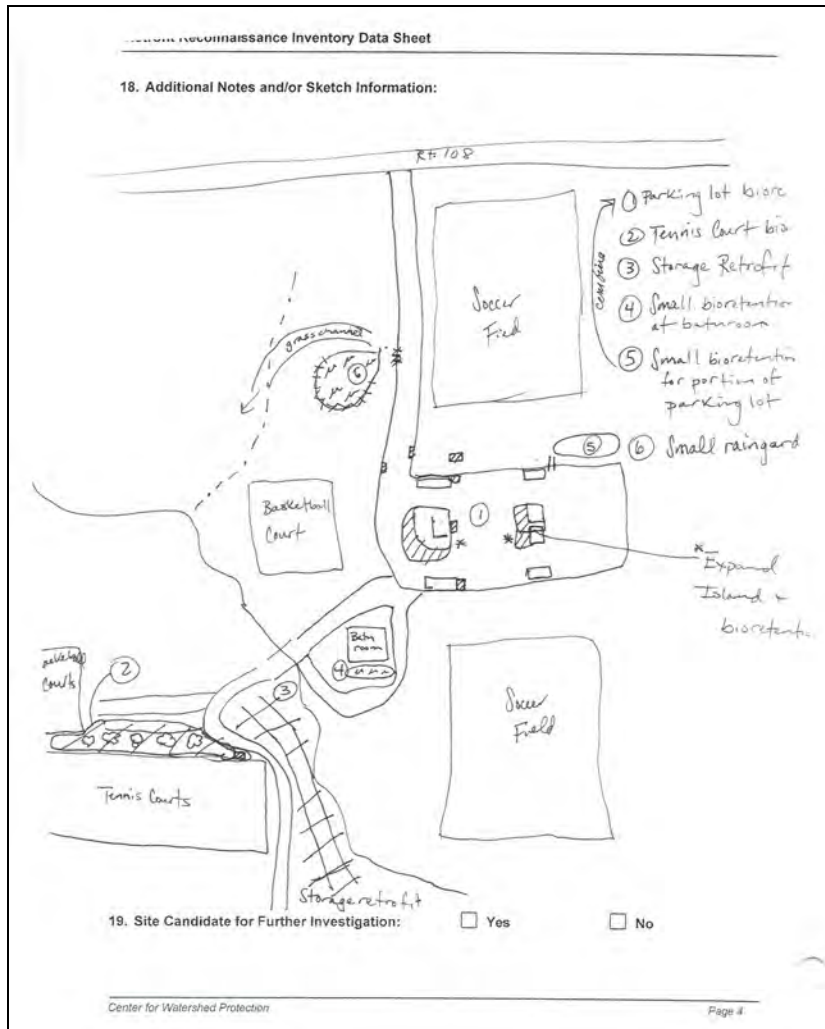 Reconnaissance Inventory Data Sheet
18. Additional Notes and/or Sketch Information:
Rt 108
① Parking lot biore
② Tennis Court bio
③ Storage Retrofit
④ Small bioretention
at bathroom
⑤ Small bioretention
for portion of
parking lot
combine
⑥ Small raingard
Soccer
Field
grass channel
⑥
⑤
①
Basketball
Court
*Expand
Island +
bioretenti
Bath
room
④
③
②
Courts
Soccer
Field
Tennis Courts
Storage retrofit
19. Site Candidate for Further Investigation: Yes No
Center for Watershed Protection Page 4